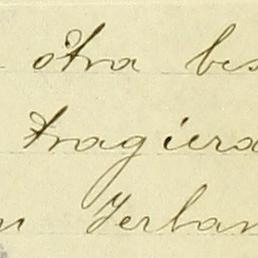 otra bes
tragiera
n Yerban